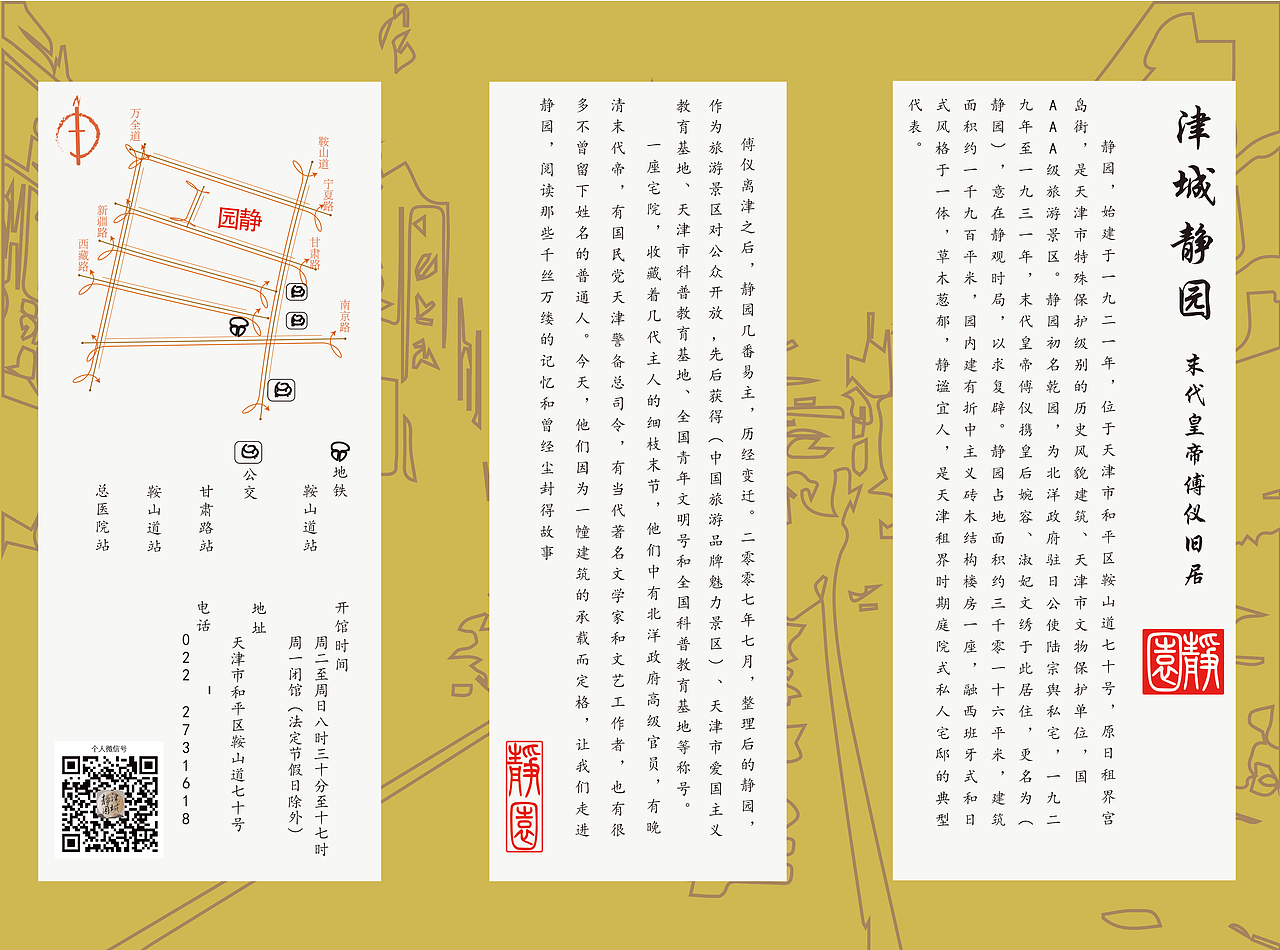 津城静园
末代皇帝傅仪旧居
靜園
静园，始建于一九二一年，位于天津市和平区鞍山道七十号，原日租界宫
岛街，是天津市特殊保护级别的历史风貌建筑、天津市文物保护单位，国
AAA级旅游景区。静园初名乾园，为北洋政府驻日公使陆宗舆私宅，一九二
九年至一九三一年，末代皇帝傅仪携皇后婉容、淑妃文绣于此居住，更名为（
静园），意在静观时局，以求复辟。静园占地面积约三千零一十六平米，建筑
面积约一千九百平米，园内建有折中主义砖木结构楼房一座，融西班牙式和日
式风格于一体，草木葱郁，静谧宜人，是天津租界时期庭院式私人宅邸的典型
代表。
傅仪离津之后，静园几番易主，历经变迁。二零零七年七月，整理后的静园，
作为旅游景区对公众开放，先后获得（中国旅游品牌魅力景区）、天津市爱国主义
教育基地、天津市科普教育基地、全国青年文明号和全国科普教育基地等称号。
一座宅院，收藏着几代主人的细枝末节，他们中有北洋政府高级官员，有晚
清末代帝，有国民党天津警备总司令，有当代著名文学家和文艺工作者，也有很
多不曾留下姓名的普通人。今天，他们因为一幢建筑的承载而定格，让我们走进
静园，阅读那些千丝万缕的记忆和曾经尘封得故事
靜園
万全道
鞍山道
宁夏路
新疆路
西藏路
甘肃路
南京路
园静
地铁
鞍山道站
公交
甘肃路站
鞍山道站
总医院站
开馆时间
周二至周日八时三十分至十七时
周一闭馆（法定节假日除外）
地址
天津市和平区鞍山道七十号
电话
022-2731618
个人微信号